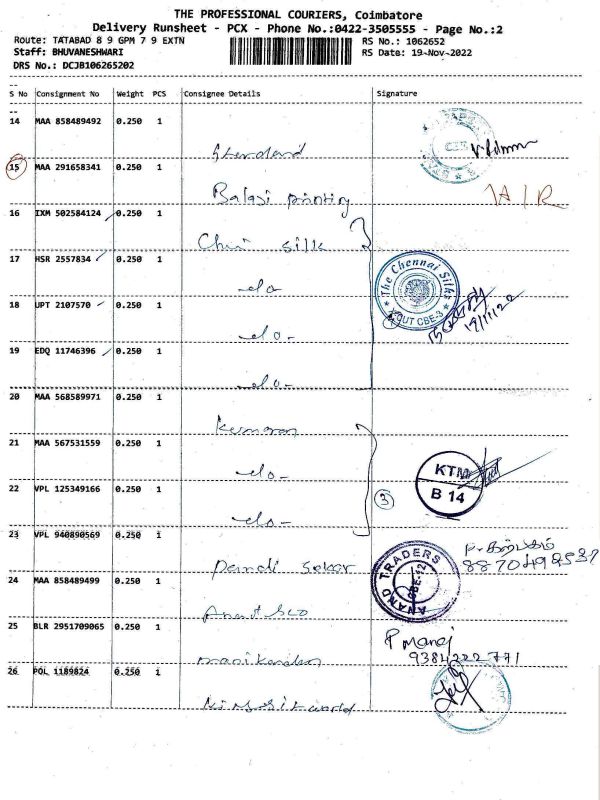 THE PROFESSIONAL COURIERS, Coimbatore
Delivery Runsheet - PCX - Phone No.:0422-3505555 - Page No.:2
Route: TATABAD 8 9 GPM 7 9 EXTN RS No.: 1062652
Staff: BHUVANESHWARI RS Date: 19-Nov-2022
DRS No.: DCJB106265202
S No Consignment No Weight PCS Consignee Details Signature
14 MAA 858489492 0.250 1
Standard
15 MAA 291658341 0.250 1
Balaji printing
16 IXM 502584124 0.250 1
Chennai silk
17 HSR 2557834 0.250 1
-do-
The Chennai Silks
CBE-3
18 UPT 2107570 0.250 1
-do-
19/11/22
19 EDQ 11746396 0.250 1
-do-
20 MAA 568589971 0.250 1
Kumaran
21 MAA 567531559 0.250 1
-do-
KTM
B 14
22 VPL 125349166 0.250 1
-do-
3
23 VPL 940890569 0.250 1
Pandi Sekar
8870498537
ANAND TRADERS
CBE-12
24 MAA 858489499 0.250 1
25 BLR 2951709065 0.250 1
manikandan
P manoj
9384222771
26 POL 1189824 0.250 1